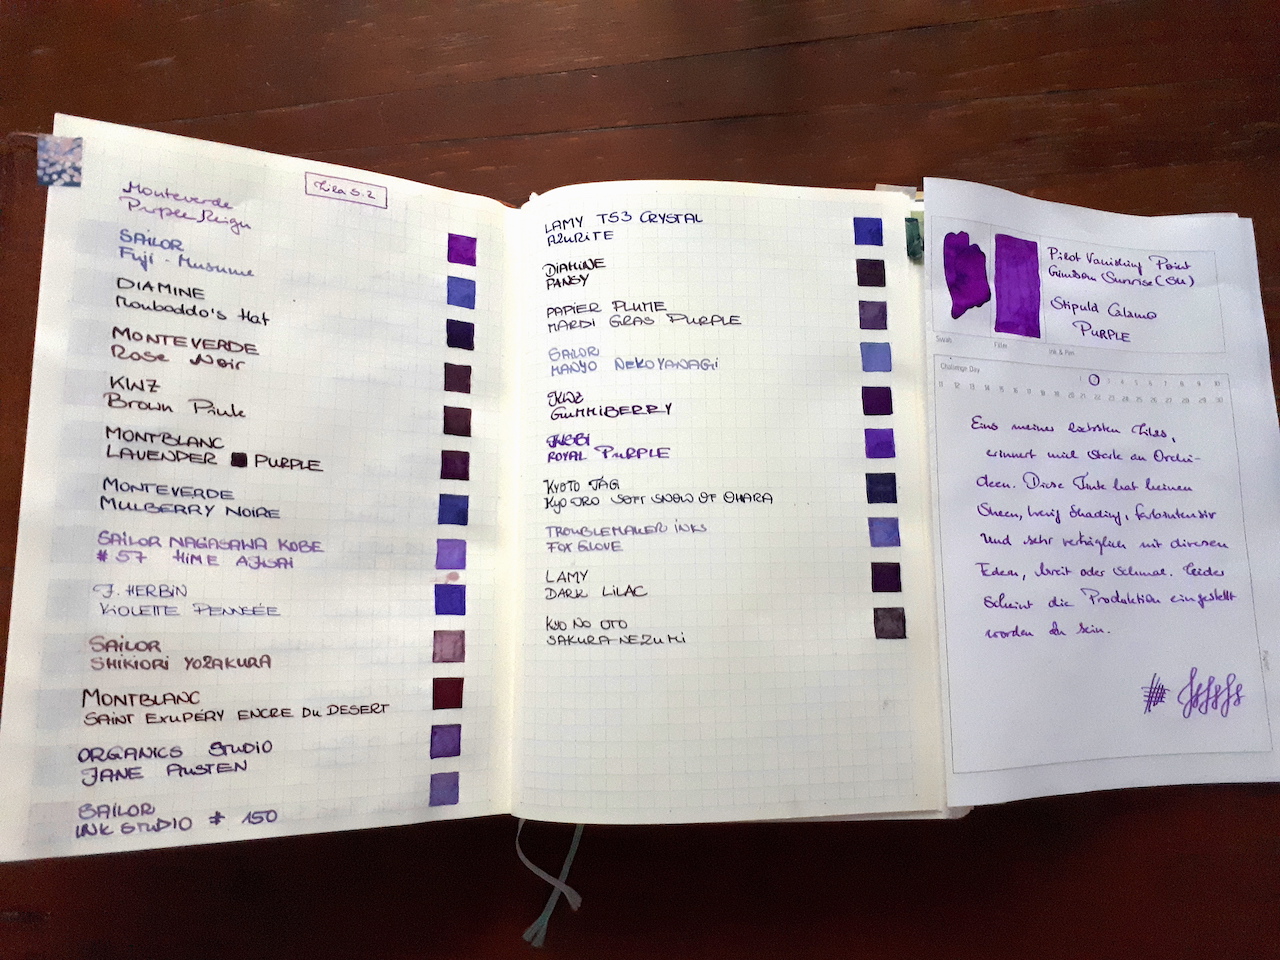 Lila S. 2
Monteverde
Purple Reign
SAILOR
Fuji - Musume
DIAMINE
Monboddo's Hat
MONTEVERDE
Rose Noir
KWZ
Brown Pink
MONTBLANC
LAVENDER PURPLE
MONTEVERDE
MULBERRY NOIRE
SAILOR NAGASAWA KOBE
# 57 HIME AJISAI
J. HERBIN
VIOLETTE PENSÉE
SAILOR
SHIKIORI YOZAKURA
MONTBLANC
SAINT EXUPÉRY ENCRE DU DESERT
ORGANICS STUDIO
JANE AUSTEN
SAILOR
INK STUDIO # 150
LAMY T53 CRYSTAL
AZURITE
DIAMINE
PANSY
PAPIER PLUME
MARDI GRAS PURPLE
SAILOR
MANYO NEKOYANAGI
KWZ
GUMMIBERRY
ROYAL PURPLE
KYOTO TAG
KYO IRO SOFT SNOW OF OHARA
TROUBLEMAKER INKS
FOX GLOVE
LAMY
DARK LILAC
KYO NO OTO
SAKURA NEZUMI
Pilot Vanishing Point
Crimson Sunrise (SU)
Stipula Calamo
PURPLE
Swab Filler Ink & Pen
Challenge Day
1 2 3 4 5 6 7 8 9 10
11 12 13 14 15 16 17 18 19 20 21 22 23 24 25 26 27 28 29 30
Eins meiner liebsten Lilas,
erinnert mich stark an Orchi-
deen. Diese Tinte hat keinen
Sheen, wenig Shading, farbintensiv
und sehr verträglich mit diversen
Federn, breit oder schmal. Leider
scheint die Produktion eingestellt
worden zu sein.
Paper
#